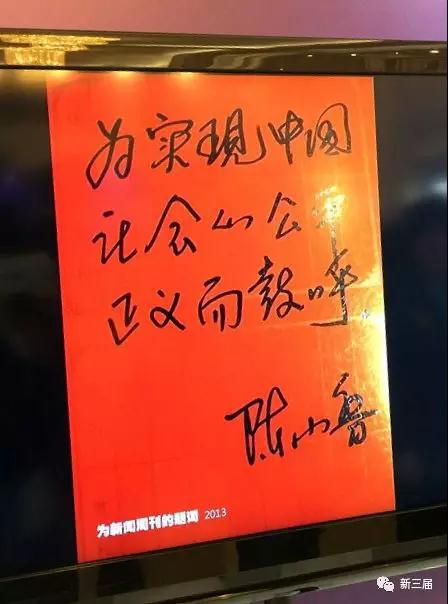 为实現中国
社会的公平
正义而鼓呼。
陈小鲁
为新闻周刊的题词 2013
新三届